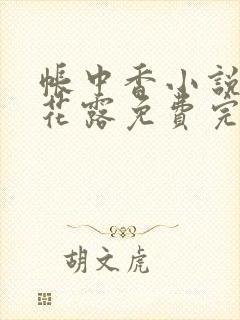 帳中香小說
花露免費完
胡文虎